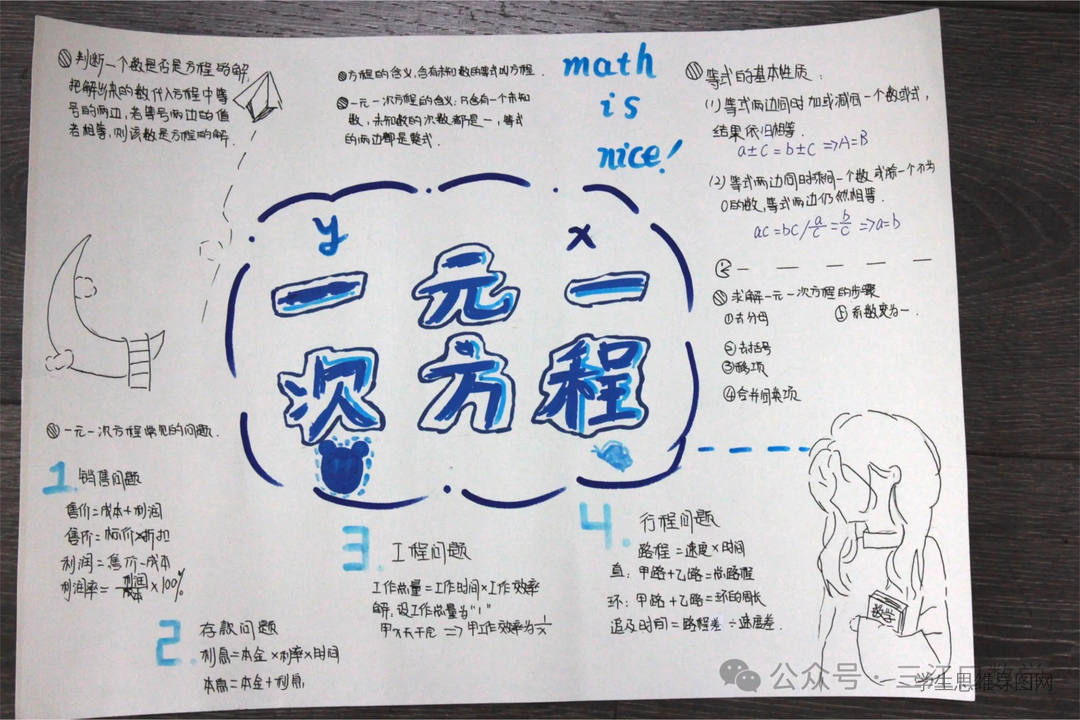 判断一个数是否是方程的解.
把解出来的数代入方程中等
号的两边,若等号两边的值
若相等,则该数是方程的解.
方程的含义,含有未知数的等式叫方程.
一元一次方程的含义:只含有一个未知
数,未知数的次数都是一,等式
的两边都是整式.
math
is
nice!
等式的基本性质:
(1)等式两边同时加或减同一个数或式,
结果依旧相等.
a±c=b±c⇒A=B
(2)等式两边同时乘同一个数或除一个不为
0的数,等式两边仍然相等.
ac=bc/a/c=b/c⇒a=b
求解一元一次方程的步骤
①去分母
⑤系数变为一.
②去括号
③移项
④合并同类项
y x
一元一
次方程
一元一次方程常见的问题.
1 销售问题
售价=成本+利润
售价=标价×折扣
利润=售价-成本
利润率=利润/成本×100%
2. 存款问题
利息=本金×利率×时间
本息=本金+利息
3. 工程问题
工作总量=工作时间×工作效率
解,设工作总量为"1"
甲x天干完⇒甲工作效率为1/x
4. 行程问题
路程=速度×时间
直:甲路+乙路=总路程
环:甲路+乙路=环的周长
追及时间=路程差÷速度差.
数学
公众号·三江
学生思维导图网